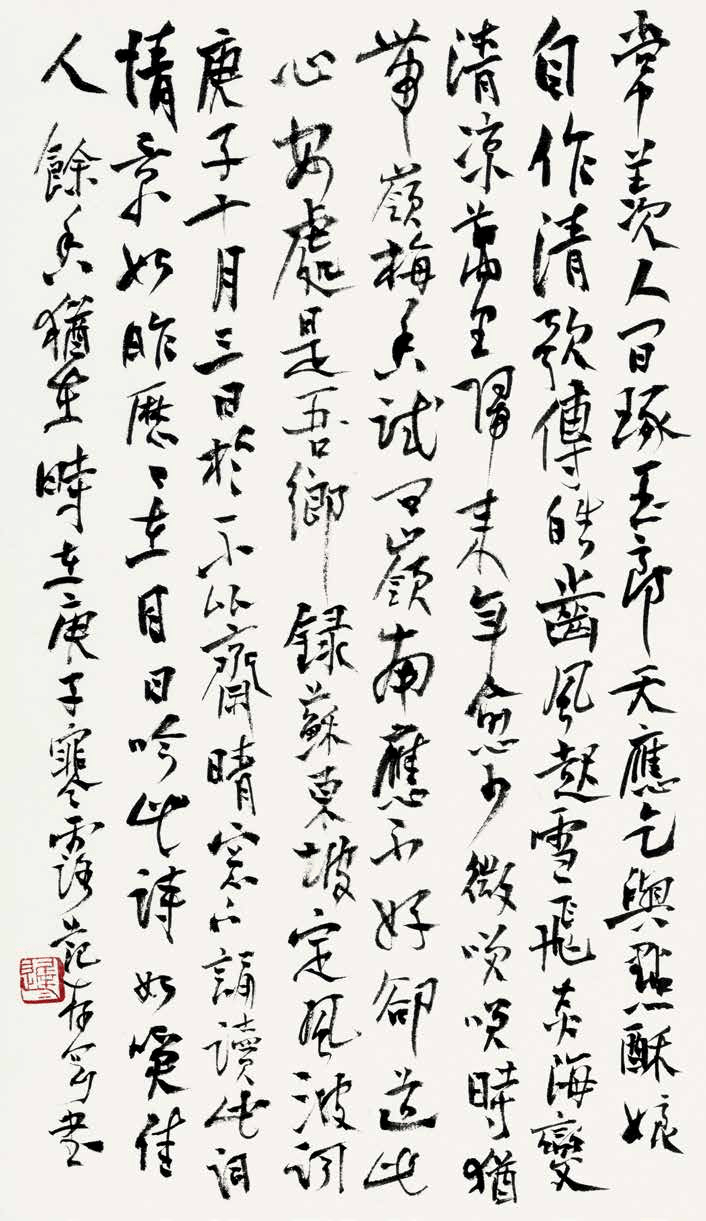 常羨人間琢玉郎天應乞與點酥娘
自作清歌傳皓齒風起雪飛炎海變
清涼萬里歸來年愈少微笑笑時猶
帶嶺梅香試問嶺南應不好卻道此
心安處是吾鄉 錄蘇東坡定風波詞
庚子十月三日於不齋晴窗下誦讀此詞
情景如昨歷〻在目日吟此詩如佳
人餘香猶在時在庚子寒露范書